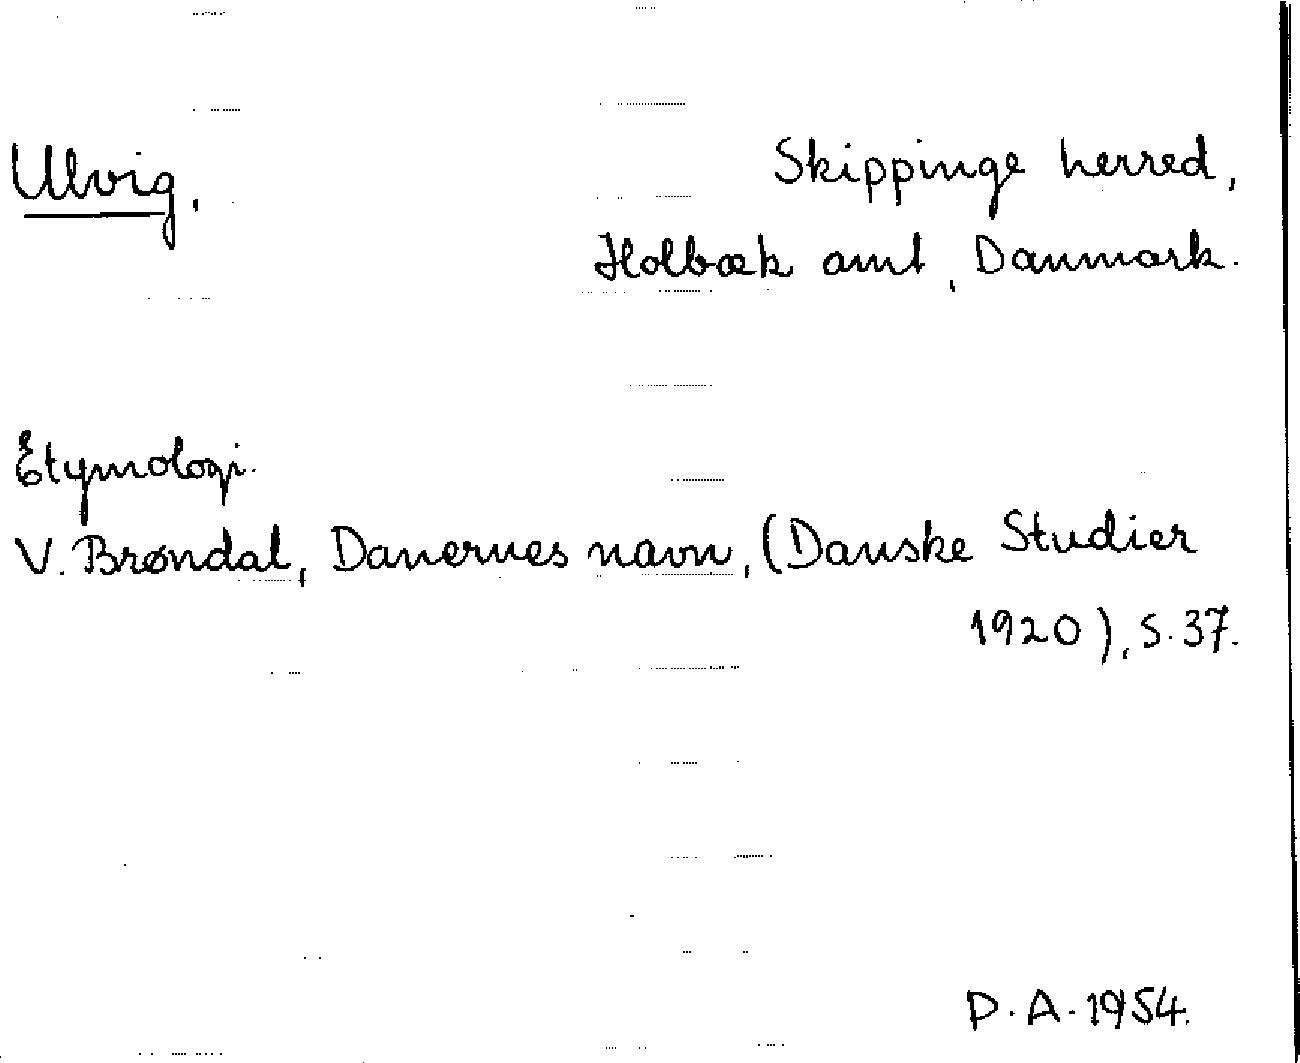 Ulvig.
Skippinge herred,
Holbæk amt, Danmark.
Etymologi.
V. Brøndal, Danernes navn, (Danske Studier
1920), s. 37.
P. A. 1954.